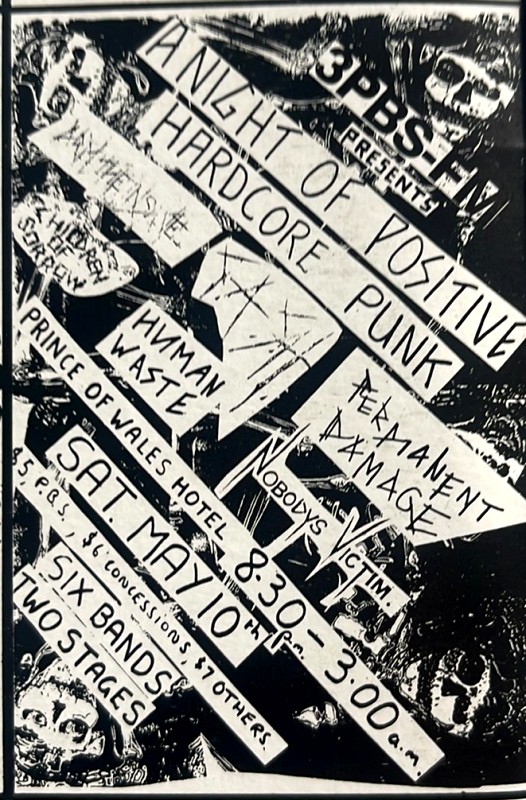 3PBS-FM
PRESENTS
A NIGHT OF POSITIVE
HARDCORE PUNK
CHILDREN
OF
SORROW
HUMAN
WASTE
PERMANENT
DAMAGE
NOBODYS VICTIM.
PRINCE OF WALES HOTEL 8.30 p.m. - 3.00 a.m.
SAT. MAY 10th
$5, P.B.S., $6 CONCESSIONS, $7 OTHERS.
SIX BANDS
TWO STAGES